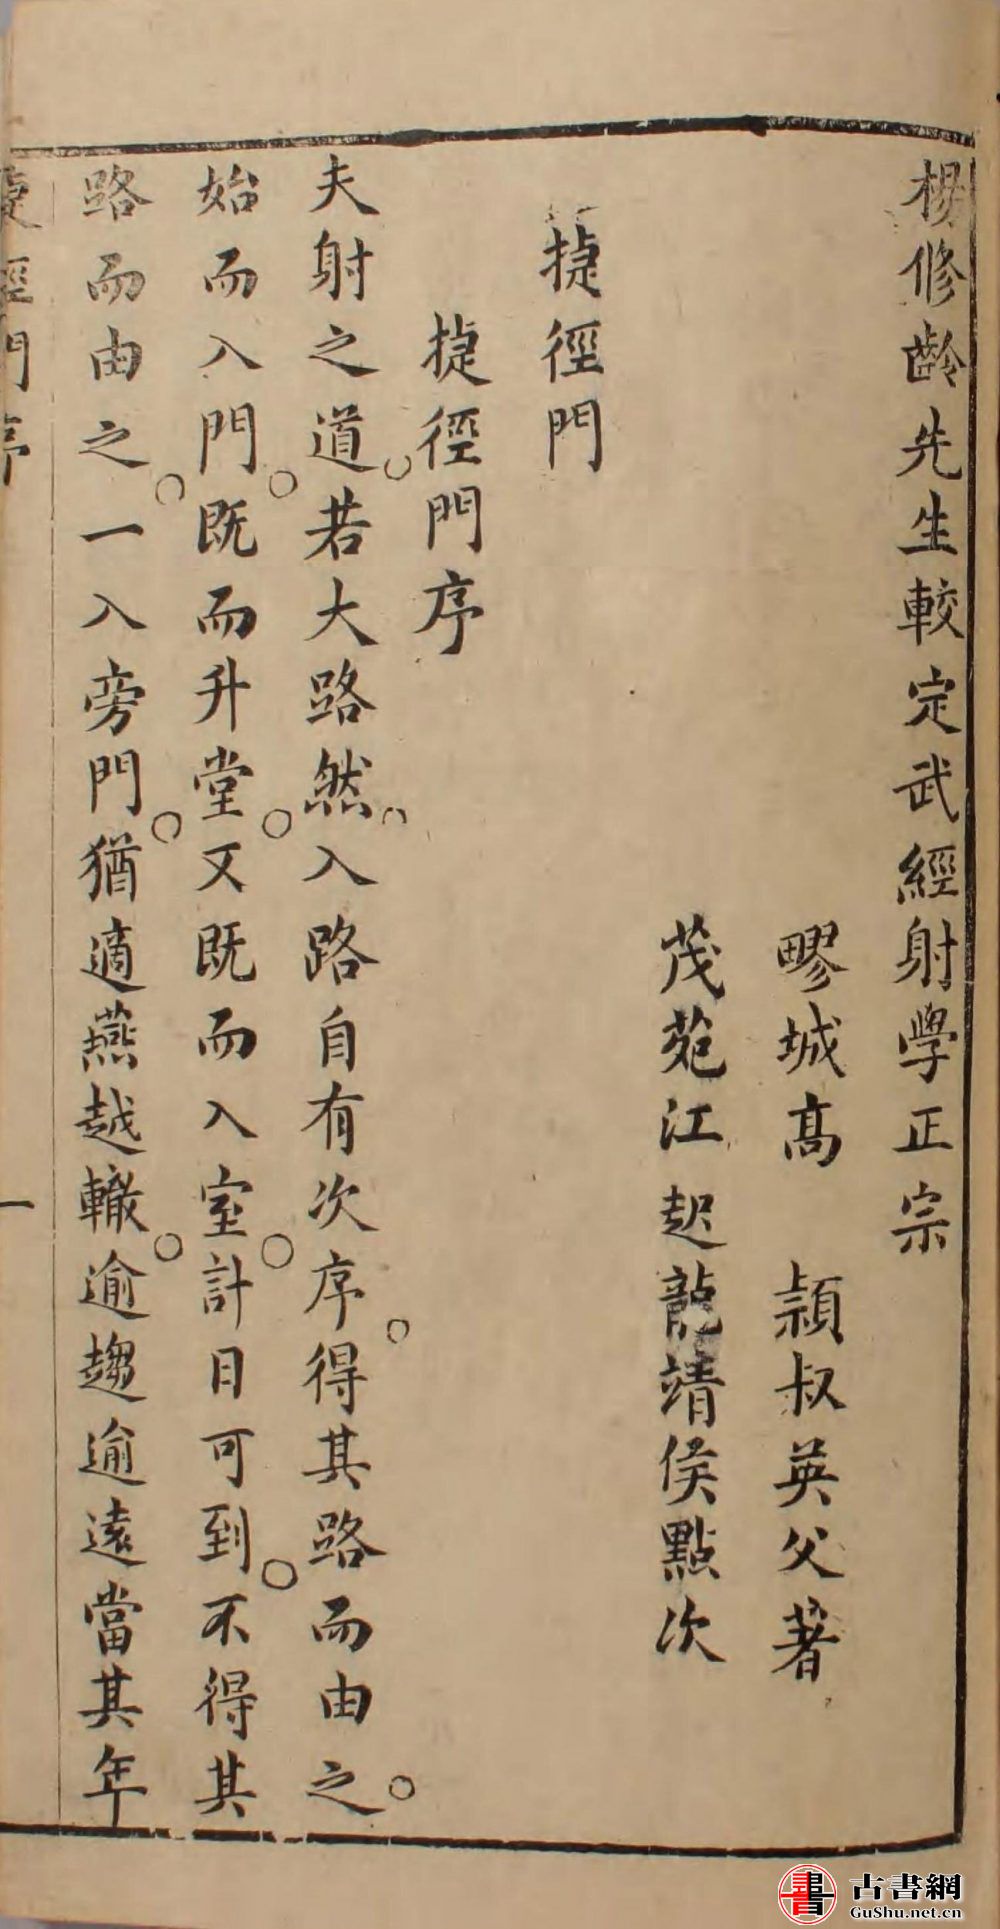 楊修齡先生較定武經射學正宗
疁城高　穎叔英父著
茂苑江起龍靖侯點次
捷徑門
捷徑門序
夫射之道若大路然入路自有次序得其路而由之
始而入門既而升堂又既而入室計日可到不得其
路而由之一入旁門猶適燕越轍逾趨逾遠當其年
捷徑門序
一
古書網
GuShu.net.cn